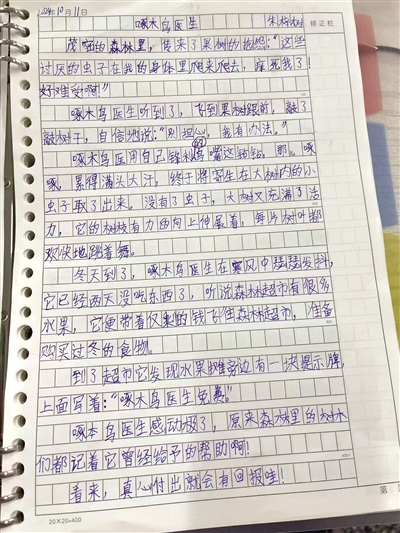 2024年10月11日
啄木鸟医生 朱梓树 修正栏
茂密的森林里，传来了果树的抱怨：“这些
讨厌的虫子在我的身体里爬来爬去，痒死我了！
好难受啊！”
啄木鸟医生听到了，飞到果树跟前，敲了
敲树干，自信地说：“别担心，我有办法。”
啄木鸟医用自己锋利的鸟嘴这钻钻，那啄
啄，累得满头大汗，终于将寄生在大树内的小
虫子取了出来。没有了虫子，大树又充满了活
力，它的树枝有力的向上伸展着，每片树叶都
欢快地跳着舞。
冬天到了，啄木鸟医生在寒风中瑟瑟发抖，
它已经两天没吃东西了，听说森林超市有很多
水果，它便带着仅剩的钱飞往森林超市，准备
购买过冬的食物。
到了超市它发现水果摊旁边有一块提示牌，
上面写着：“啄木鸟医生免费。”
啄木鸟医生感动极了，原来森林里的树木
们都记着它曾经给予的帮助啊！
看来，真心付出就会有回报哇！
20×20=400 第